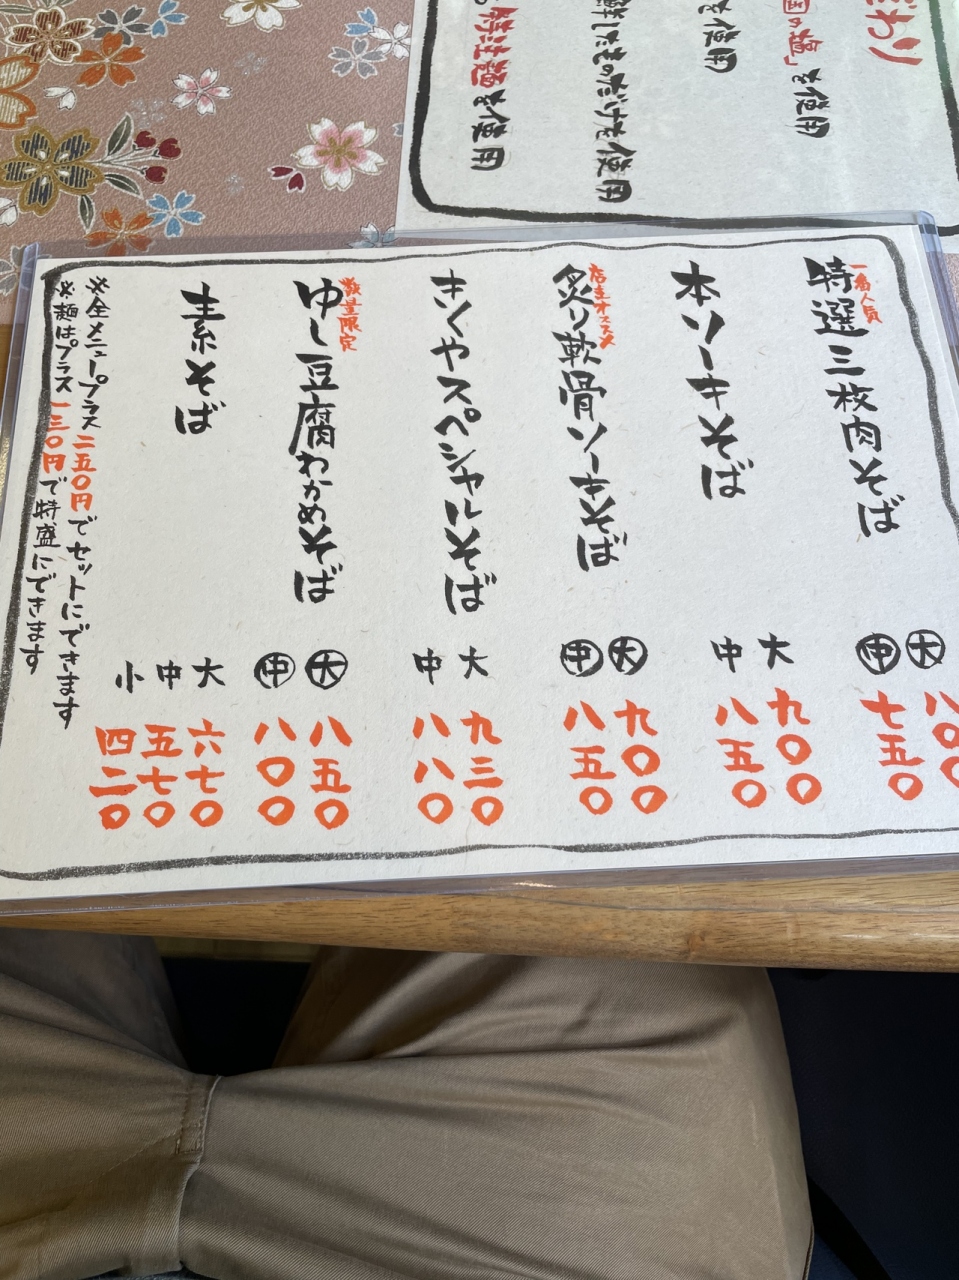 わり
国の塩」を使用
を使用
鮮したものだけを使用
特注麺を使用
一番人気
特選三枚肉そば
大 八〇
中 七五〇
本ソーキそば
大 九〇〇
中 八五〇
店主オススメ
炙り軟骨ソーキそば
大 九〇〇
中 八五〇
きくやスペシャルそば
大 九三〇
中 八八〇
数量限定
ゆし豆腐わかめそば
大 八五〇
中 八〇〇
素そば
大 六七〇
中 五七〇
小 四二〇
※全メニュープラス二五〇円でセットにできます
※麺はプラス一三〇円で特盛にできます